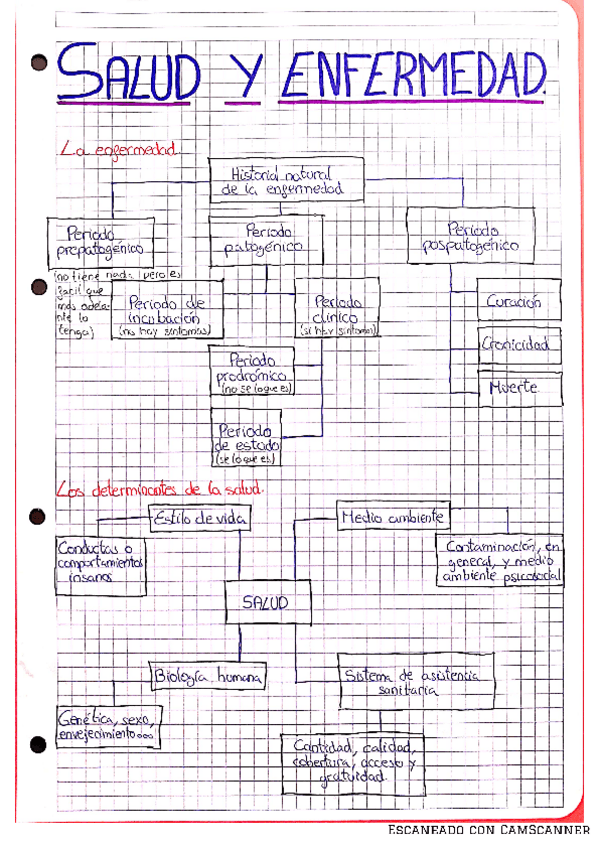 SALUD Y ENFERMEDAD.
La enfermedad.
Historial natural
de la enfermedad
Periodo
prepatogénico
(no tiene nada, pero es
facil que
más adela-
nte lo
tenga)
Periodo
patogénico
Periodo
pospatogénico
Periodo de
incubación
(no hay síntomas)
Periodo
clínico
(si hay síntomas)
Curación
Cronicidad
Muerte
Periodo
prodrómico
(no se lo que es)
Periodo
de estado
(se lo que es)
Los determinantes de la salud.
Estilo de vida
Medio ambiente
Conductas o
comportamientos
insanos
Contaminación, en
general, y medio
ambiente psicosocial
SALUD
Biología humana
Sistema de asistencia
sanitaria
Genética, sexo,
envejecimiento...
Cantidad, calidad,
cobertura, acceso y
gratuidad.
ESCANEADO CON CAMSCANNER